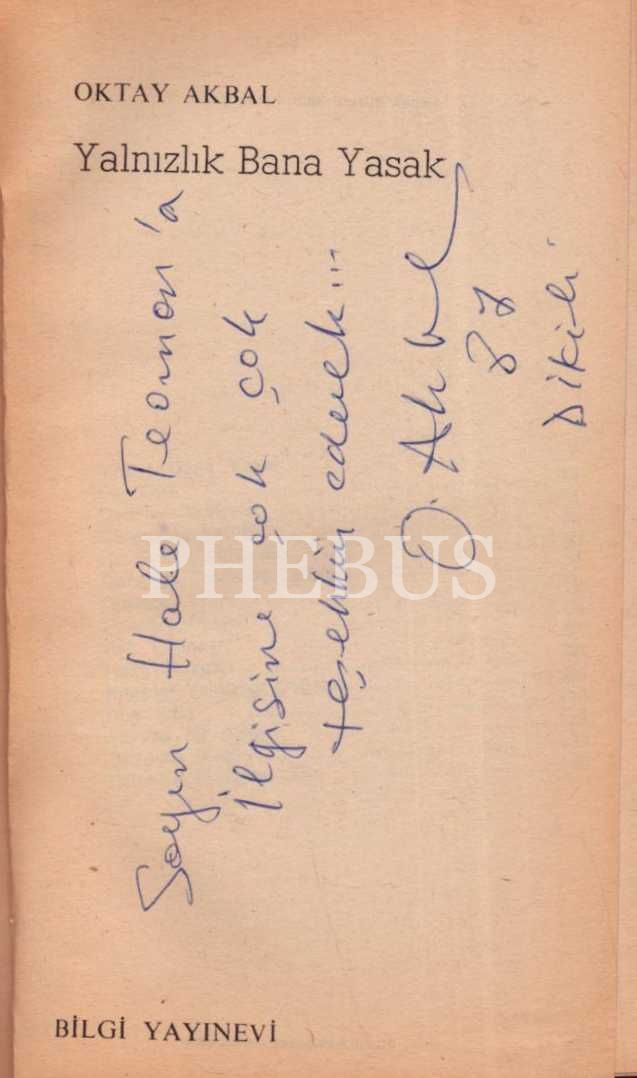 OKTAY AKBAL
Yalnızlık Bana Yasak
Sayın Hale Teoman'a
İlgisine çok çok
teşekkür ederek...
O. Akbal
Dikili
PHEBUS
BİLGİ YAYINEVİ